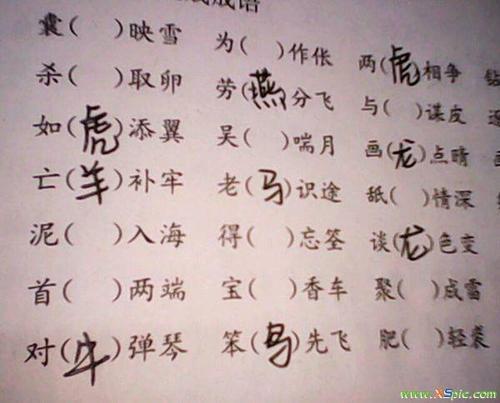 成语
囊( )映雪 为( )作伥 两(虎)相争
杀( )取卵 劳(燕)分飞 与( )谋皮
如(虎)添翼 吴( )喘月 画(龙)点睛
亡(羊)补牢 老(马)识途 舐( )情深
泥( )入海 得( )忘筌 谈(龙)色变
首( )两端 宝( )香车 聚( )成雪
对(牛)弹琴 笨(鸟)先飞 肥( )轻裘
www.XSpic.com